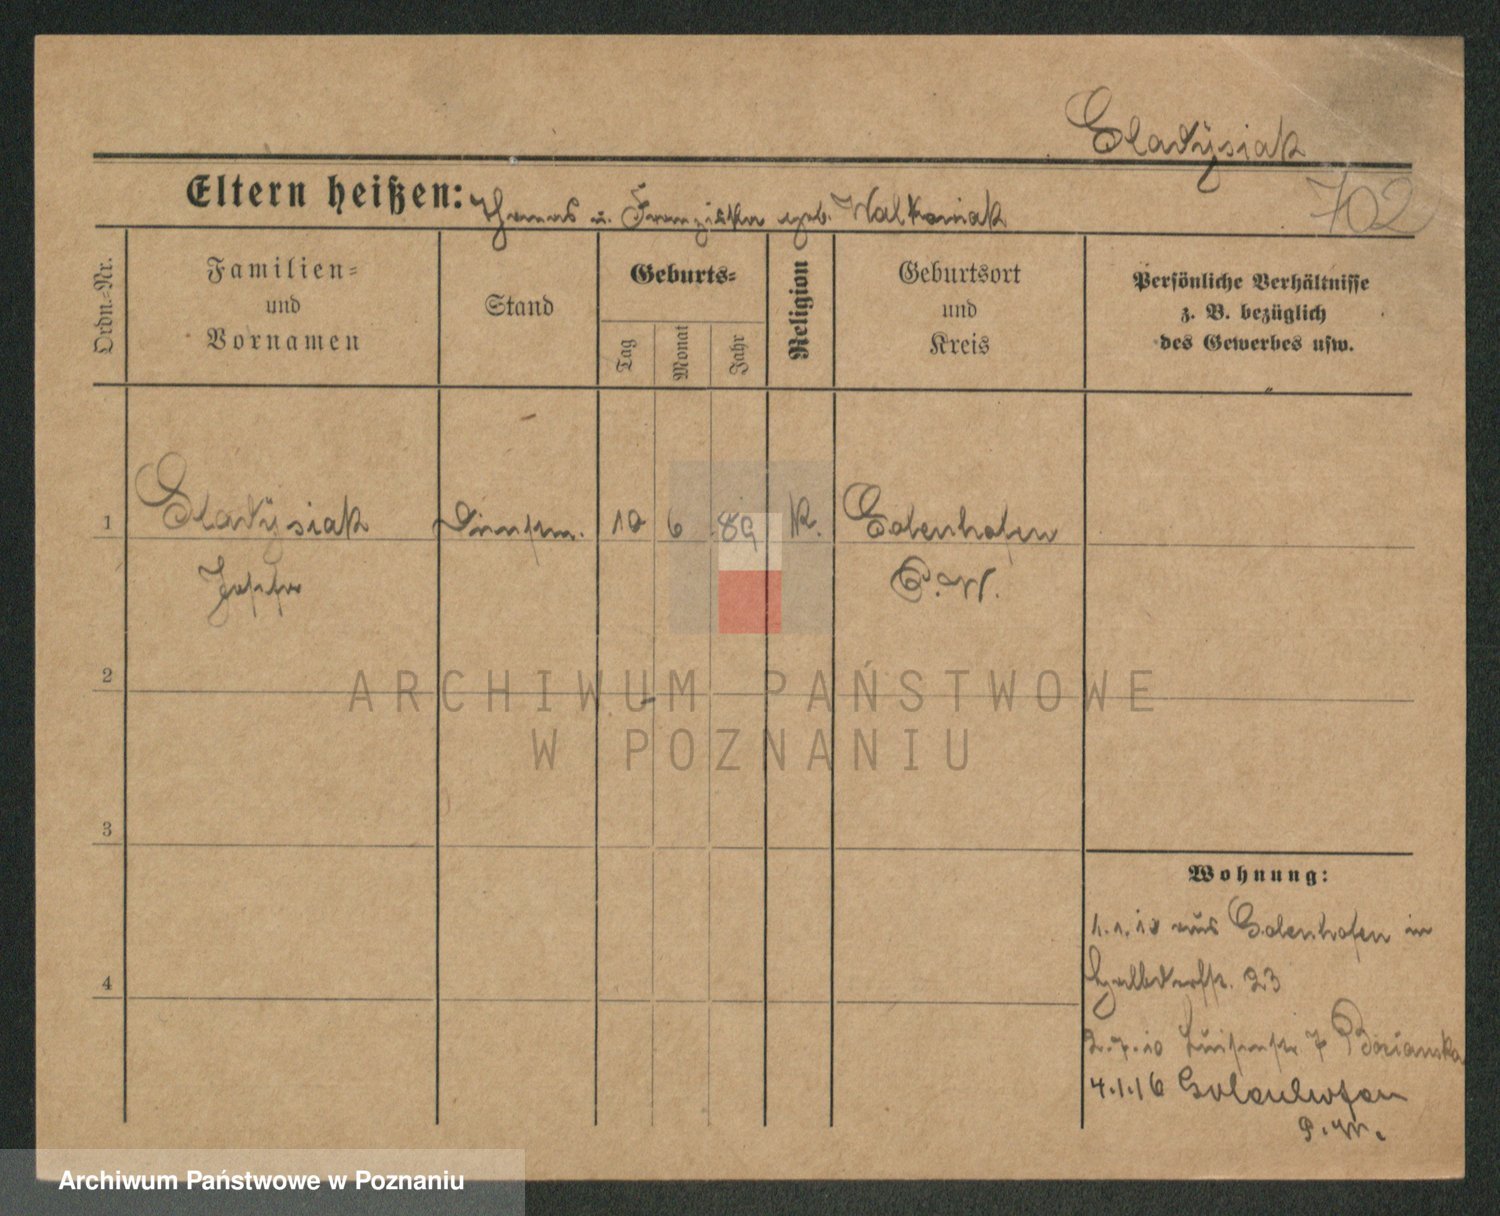 Gladysiak
Eltern heißen: Thomas u. Franziska geb. Walkowiak
702
Ordn.-Nr.
Familien-
und
Vornamen
Stand
Geburts-
Tag
Monat
Jahr
Religion
Geburtsort
und
Kreis
Persönliche Verhältnisse
z. B. bezüglich
des Gewerbes usw.
1
Gladysiak Dienstm. 10 6 89 K. Golenhofen
Josefa P. W.
2
3
4
Wohnung:
1.1.10 aus Golenhofen in
23
2.7.10 Luisenstr 7
4.1.16 Golenhofen
P. W.
ARCHIWUM PAŃSTWOWE
W POZNANIU
Archiwum Państwowe w Poznaniu